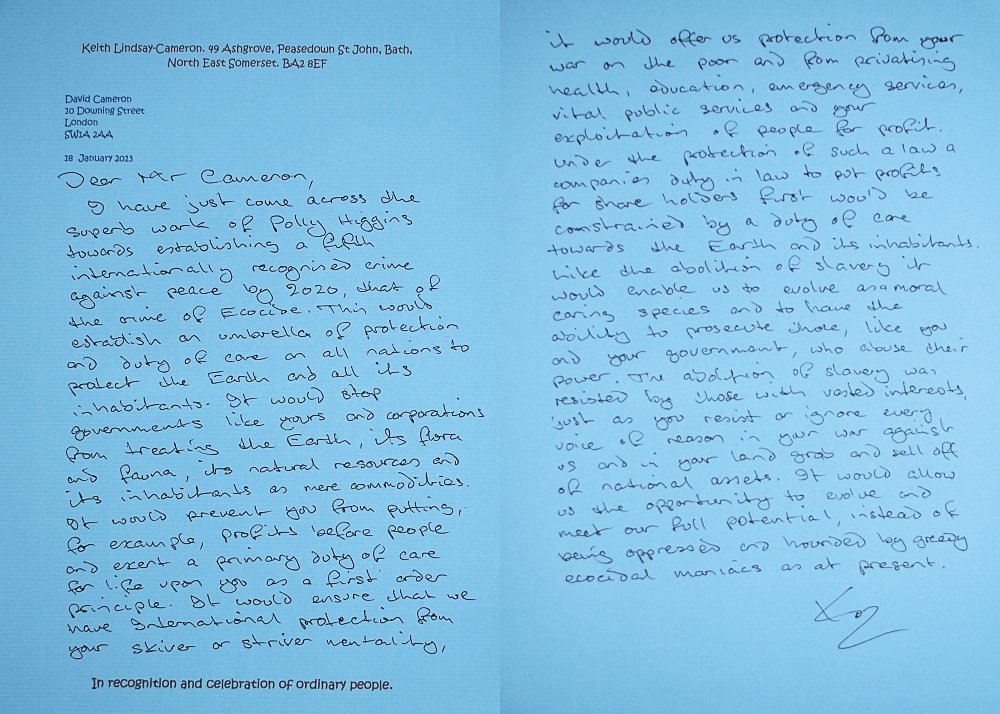 Keith Lindsay-Cameron. 49 Ashgrove, Peasedown St John, Bath,
North East Somerset. BA2 8EF
David Cameron
10 Downing Street
London
SW1A 2AA
18 January 2013
Dear Mr Cameron,
I have just come across the
superb work of Polly Higgins
towards establishing a fifth
internationally recognised crime
against peace by 2020, that of
the crime of Ecocide. This would
establish an umbrella of protection
and duty of care on all nations to
protect the Earth and all its
inhabitants. It would stop
governments like yours and corporations
from treating the Earth, its flora
and fauna, its natural resources and
its inhabitants as mere commodities.
It would prevent you from putting,
for example, profits before people
and exert a primary duty of care
for life upon you as a first order
principle. It would ensure that we
have International protection from
your skiver or striver mentality,
In recognition and celebration of ordinary people.
it would offer us protection from your
war on the poor and from privatising
health, education, emergency services,
vital public services and your
exploitation of people for profit.
Under the protection of such a law a
companies duty in law to put profits
for share holders first would be
constrained by a duty of care
towards the Earth and its inhabitants.
Like the abolition of slavery it
would enable us to evolve as a moral
caring species and to have the
ability to prosecute those, like you
and your government, who abuse their
power. The abolition of slavery was
resisted by those with vested interests,
just as you resist or ignore every
voice of reason in your war against
us and in your land grab and sell off
of national assets. It would allow
us the opportunity to evolve and
meet our full potential, instead of
being oppressed and hounded by greedy
ecocidal maniacs as at present.